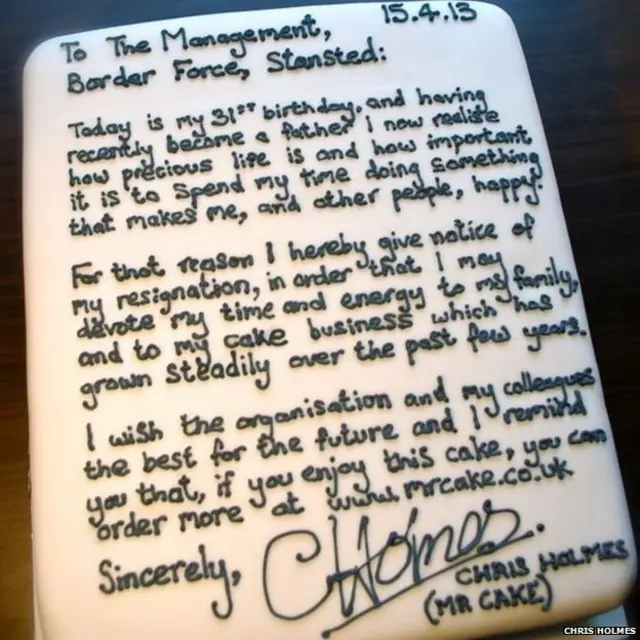 15.4.13
To The Management,
Border Force, Stansted:
Today is my 31ST birthday, and having
recently become a father I now realise
how precious life is and how important
it is to spend my time doing something
that makes me, and other people, happy.
For that reason I hereby give notice of
my resignation, in order that I may
devote my time and energy to my family,
and to my cake business which has
grown steadily over the past few years.
I wish the organisation and my colleagues
the best for the future and I remind
you that, if you enjoy this cake, you can
order more at www.mrcake.co.uk
Sincerely,
CHolmes.
CHRIS HOLMES
(MR CAKE)
CHRIS HOLMES